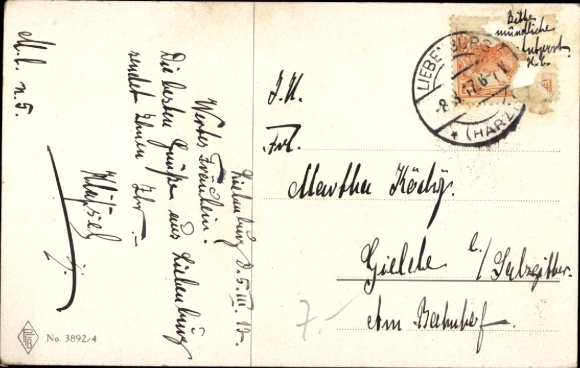 M. l. n. 5.
Liebenburg d. 5. III. 17.
Wertes Fräulein.
Die besten Grüße aus Liebenburg
sendet Ihnen Ihr –
No. 3892/4
Bitte
mündliche
Antwort.
LIEBENBURG
-8.3.17.6-7N.
* (HARZ)
Frl.
Martha Köhig.
Gielde b./Salzgitter.
Am Bahnhof.
7.–